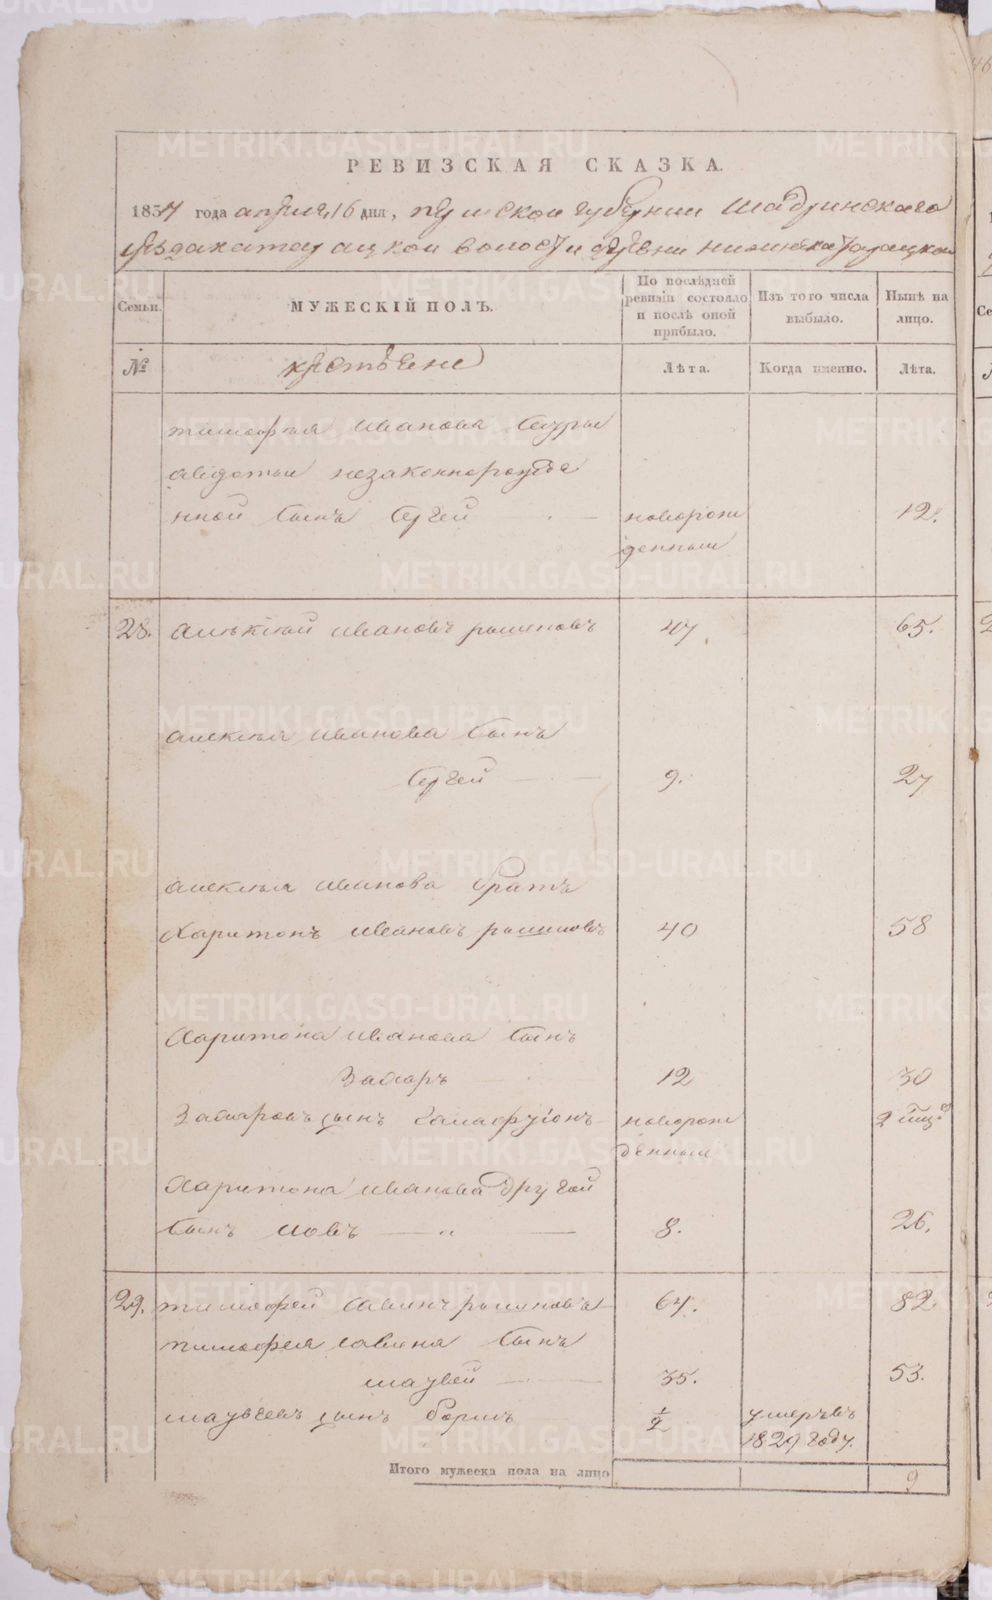 РЕВИЗСКАЯ СКАЗКА.
1834 года апреля 16 дня, пермской губернии Шадринскаго
уезда катайской волости деревни
Семьи.
МУЖЕСКІЙ ПОЛЪ.
По послѣдней ревизіи состояло и послѣ оной прибыло.
Изъ того числа выбыло.
Нынѣ на лицо.
№
крестьяне
Лѣта.
Когда именно.
Лѣта.
тимофея иванова сестры
авдотьи незаконнорожде
нной сынъ Сергей новорож 12.
денный
28. алексей ивановъ 47 65.
алексея иванова сынъ
Сергей 9. 27
алексея иванова братъ
Харитонъ ивановъ 40 58
Харитона иванова сынъ
Захаръ 12 30
Захаровъ сынъ новорож 2
денный
Харитона иванова другой
сынъ иовъ 8. 26.
29. тимофей савинъ 64. 82
тимофея савина сынъ
матвей 35. 53.
матвеевъ сынъ борисъ 1/2 умеръ въ
1829 году.
Итого мужеска пола на лицо 9
METRIKI.GASO-URAL.RU